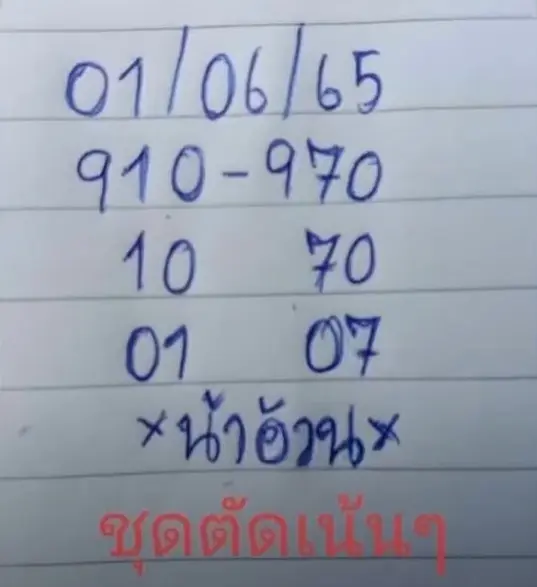 01/06/65
910-970
10 70
01 07
×น้าอ้วน×
ชุดตัดเน้นๆ